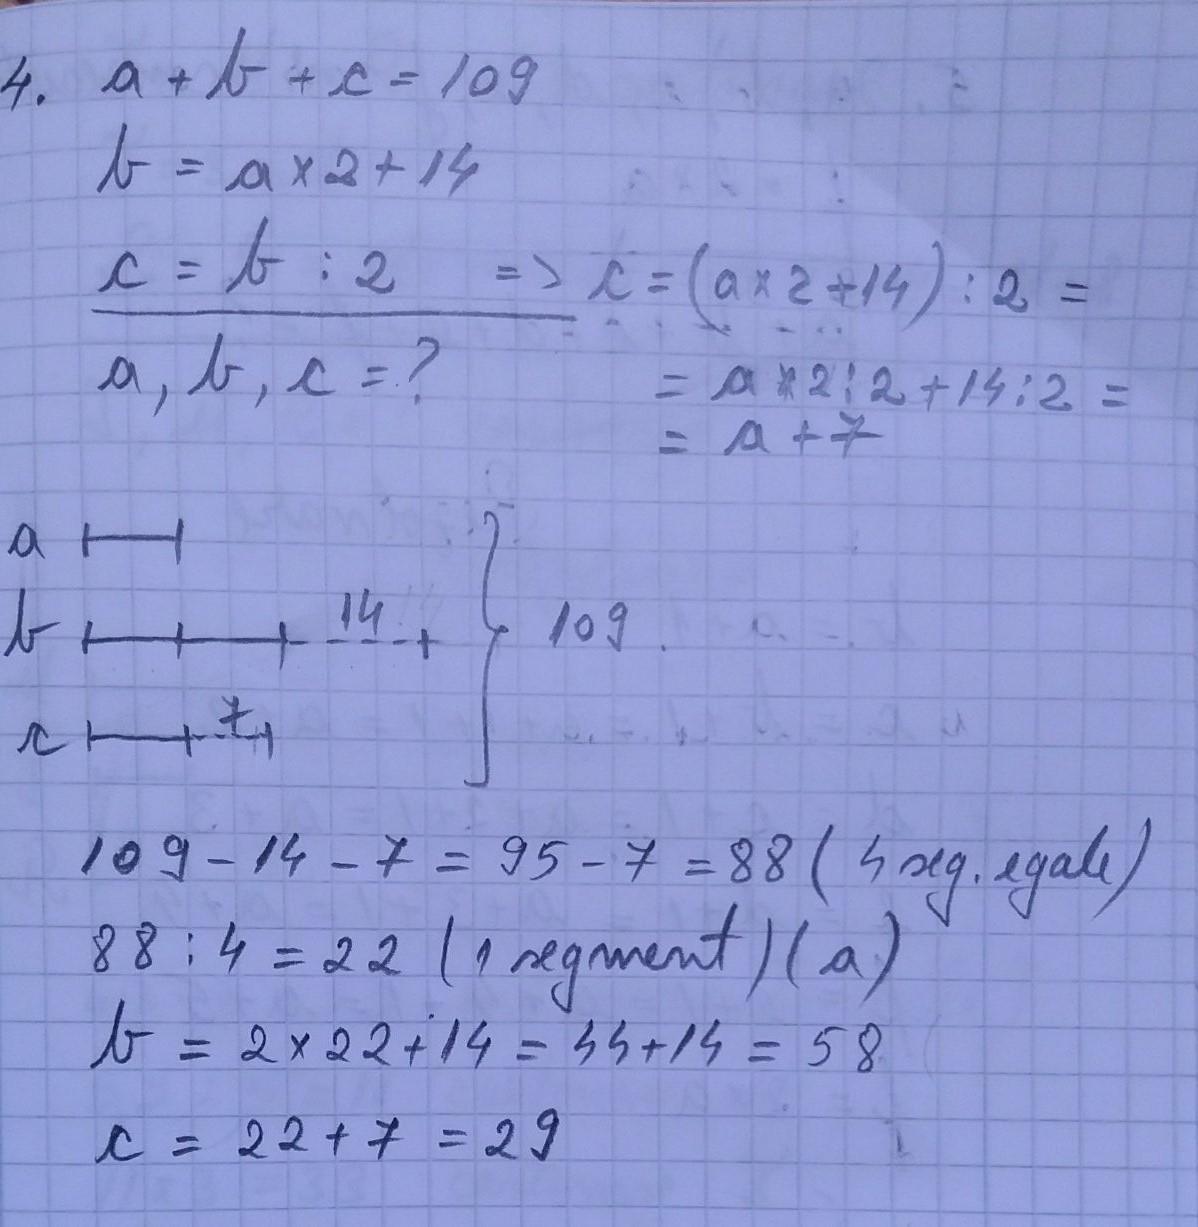 4. a + b + c = 109
b = a x 2 + 14
c = b : 2 => c = (a x 2 + 14) : 2 =
a, b, c = ? = a x 2 : 2 + 14 : 2 =
= a + 7
a
b 14 109
c 7
109 - 14 - 7 = 95 - 7 = 88 ( 4 seg. egale)
88 : 4 = 22 (1 segment) (a)
b = 2 x 22 + 14 = 44 + 14 = 58
c = 22 + 7 = 29